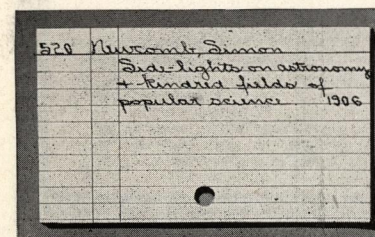 520 Newcomb, Simon
Side-lights on astronomy
+ kindred fields of
popular science 1906